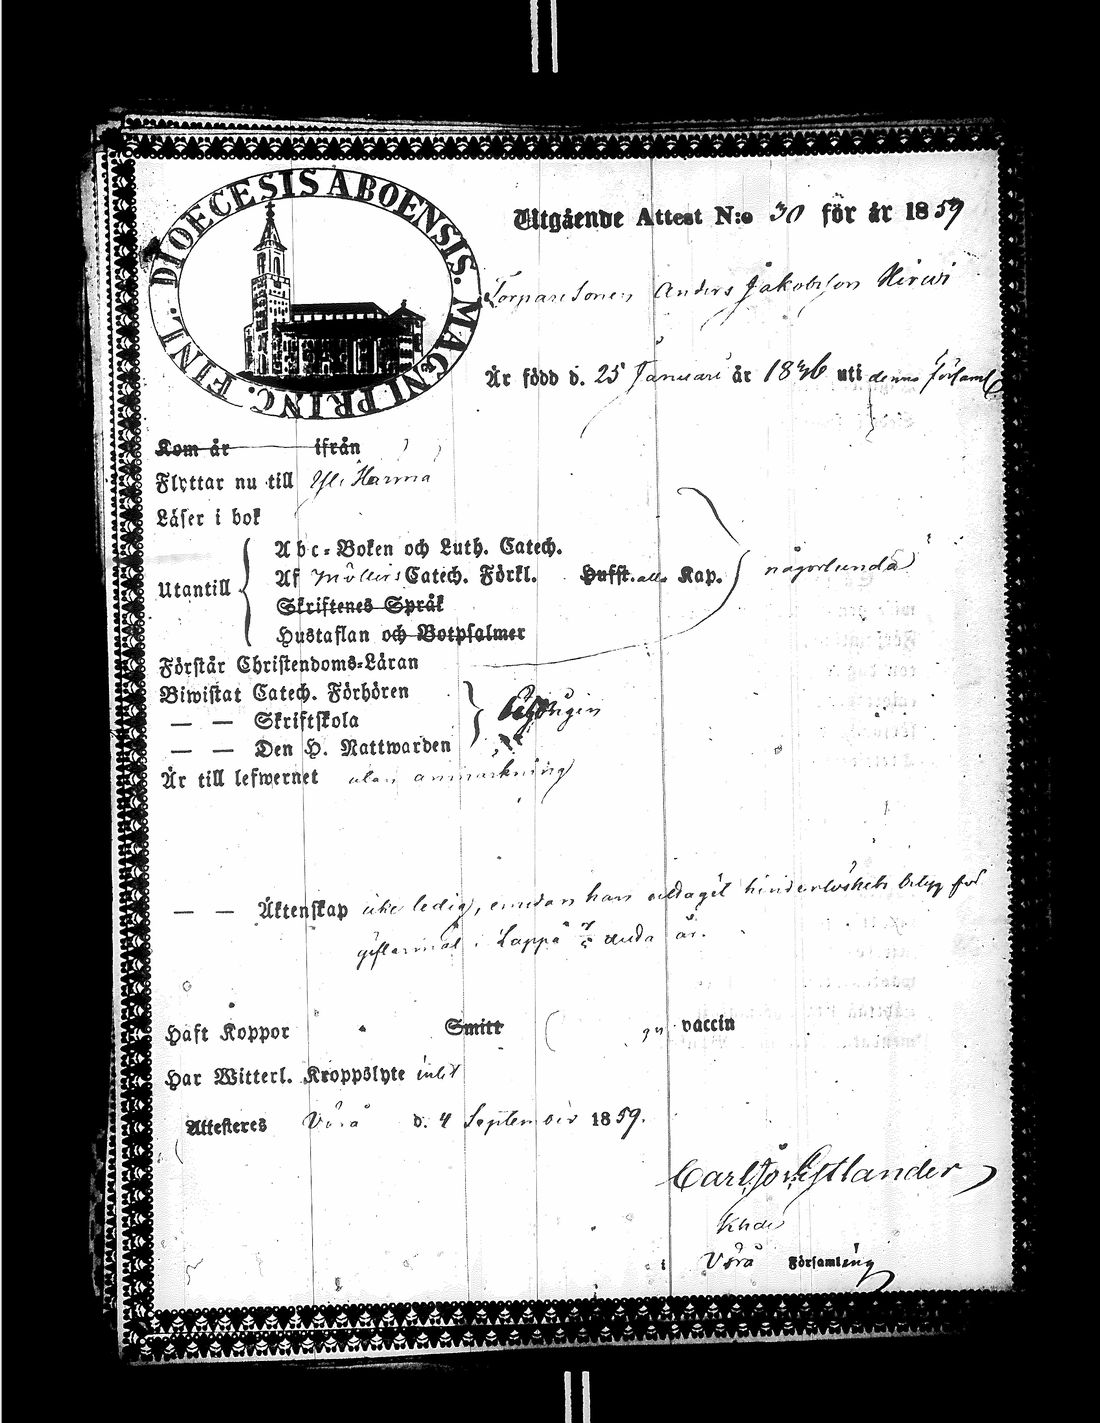 DIOECESIS ABOENSIS. MAGNI PRINC. FINL.
Utgående Attest N:o 30 för år 1859
Torparesonen Anders Jakobsson Hirwi
Är född d. 25 Januari år 1836 uti denna Församl
Kom år ifrån
Flyttar nu till Yli Härmä
Läser i bok
Abc-Boken och Luth. Catech.
Utantill Af Möllers Catech. Förkl. Hufst. alla Kap. någorlunda
Skriftenes Språk
Hustaflan och Botpsalmer
Förstår Christendoms-Läran
Biwistat Catech. Förhören
— — Skriftskola
— — Den H. Nattwarden
Är till lefwernet utan anmärkning
— — Äktenskap icke ledig, emedan han uttagit hinderlöshets betyg för
giftermål i Lappå detta år.
Haft Koppor Smitt vaccin
Har Witterl. Kroppslyte intet
Attesteres Vörå d. 4 September 1859.
Carl Estlander
Khde
i Vörå Församling